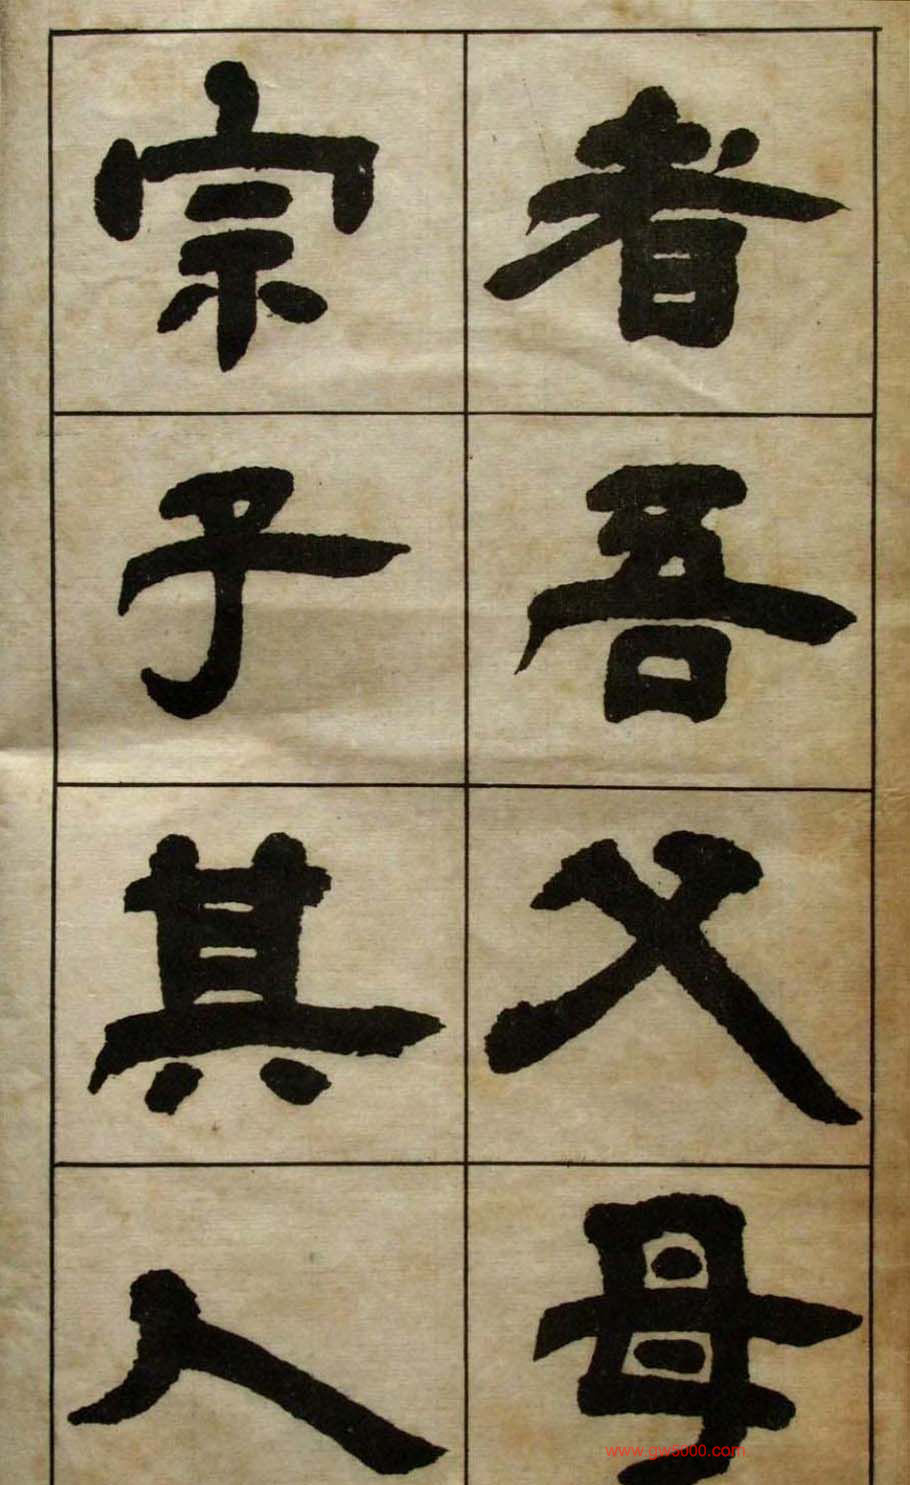 者吾父母
宗子其人
www.gw5000.com